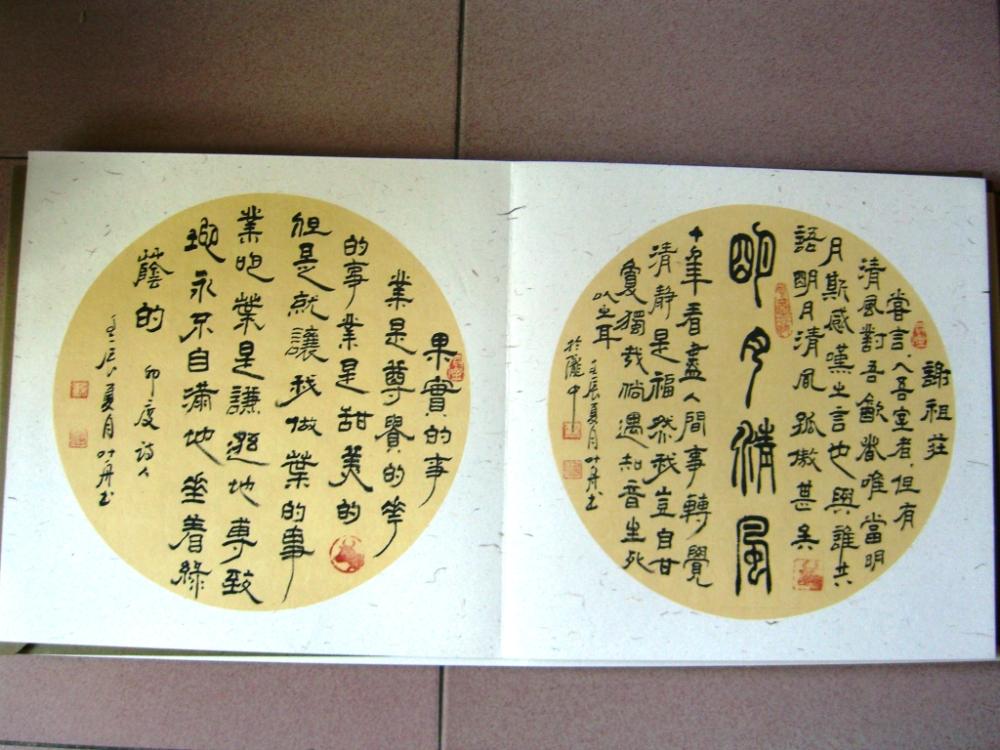 謝祖莊
嘗言入吾室者但有
清風對吾飲者唯當明
月斯感嘆之言也與誰共
語明月清風孤傲甚矣
明月清風
十年看盡人間事轉覺
清靜是福然我豈自甘
獨哉倘遇知音生死
以之耳
壬辰夏月叶舟书
於隴中
果實的事
業是尊貴的花
的事業是甜美的
但是就讓我做葉的事
業吧葉是謙遜地專致
地永不自滿地垂着綠
蔭的
印度詩人
壬辰夏月叶舟书